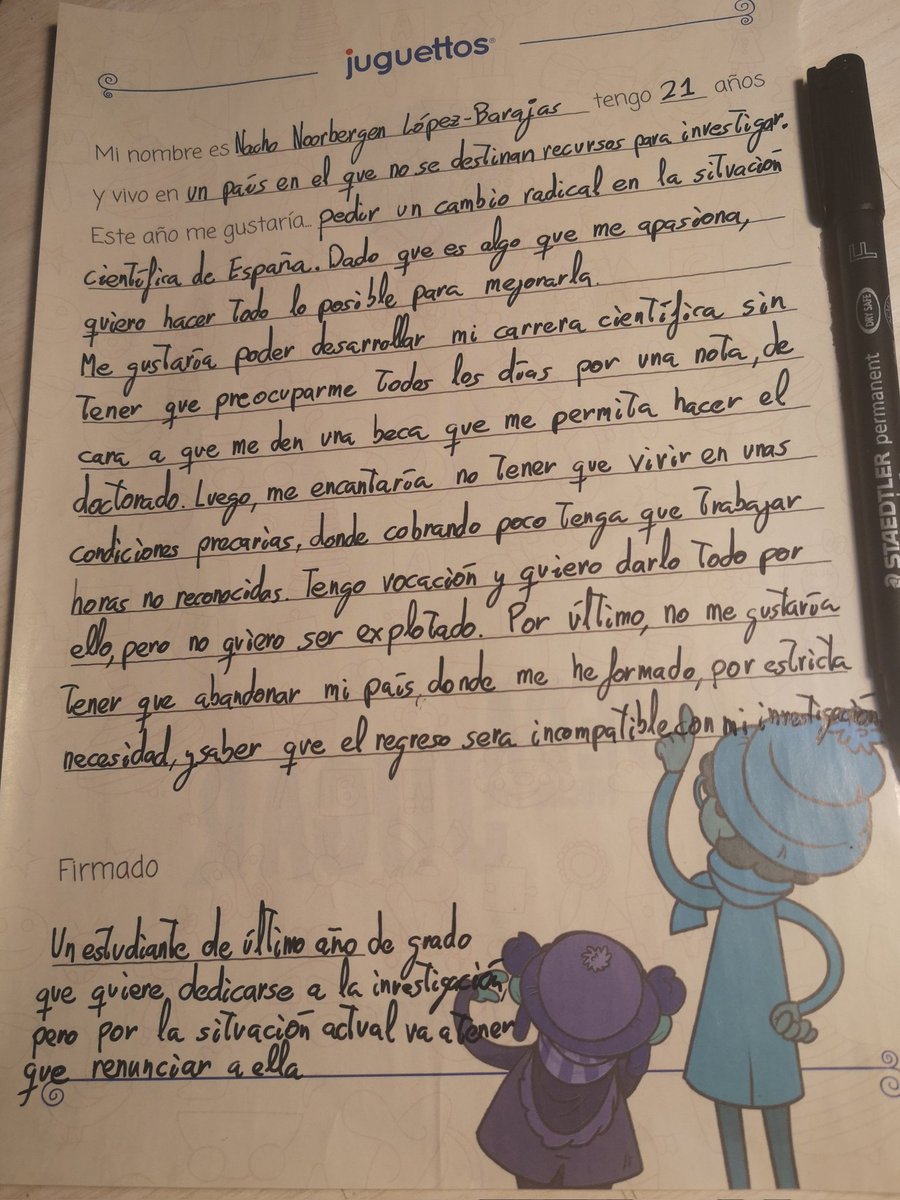 juguettos
Mi nombre es Nacho Noorbergen López-Barajas tengo 21 años
Y vivo en un país en el que no se destinan recursos para investigar.
Este año me gustaría... pedir un cambio radical en la situación
científica de España. Dado que es algo que me apasiona,
quiero hacer todo lo posible para mejorarla.
Me gustaría poder desarrollar mi carrera científica sin
tener que preocuparme todos los días por una nota, de
cara a que me den una beca que me permita hacer el
doctorado. Luego, me encantaría no tener que vivir en unas
condiciones precarias, donde cobrando poco tenga que trabajar
horas no reconocidas. Tengo vocación y quiero darlo todo por
ello, pero no quiero ser explotado. Por último, no me gustaría
tener que abandonar mi país, donde me he formado, por estricta
necesidad, y saber que el regreso sera incompatible con mi investigación
Firmado
Un estudiante de último año de grado
que quiere dedicarse a la investigación
pero por la situación actual va a tener
que renunciar a ella
STAEDTLER permanent
DRY SAFE
F